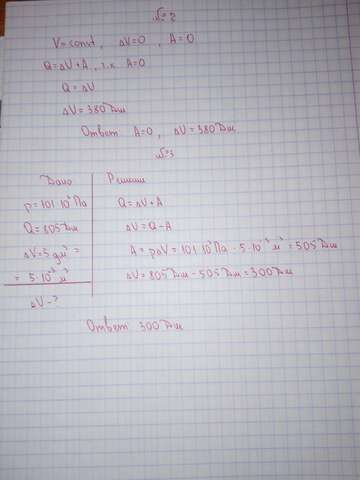 №2
V=const, ΔV=0, A=0
Q=ΔV+A, т.к. A=0
Q=ΔV
ΔV=380Дж
Ответ A=0, ΔV=380Дж
№3
Дано
p=101·10³Па
Q=805Дж
ΔV=5дм³=
=5·10⁻³м³
ΔV-?
Решение
Q=ΔV+A
ΔV=Q-A
A=pΔV=101·10³Па·5·10⁻³м³=505Дж
ΔV=805Дж-505Дж=300Дж
Ответ 300Дж